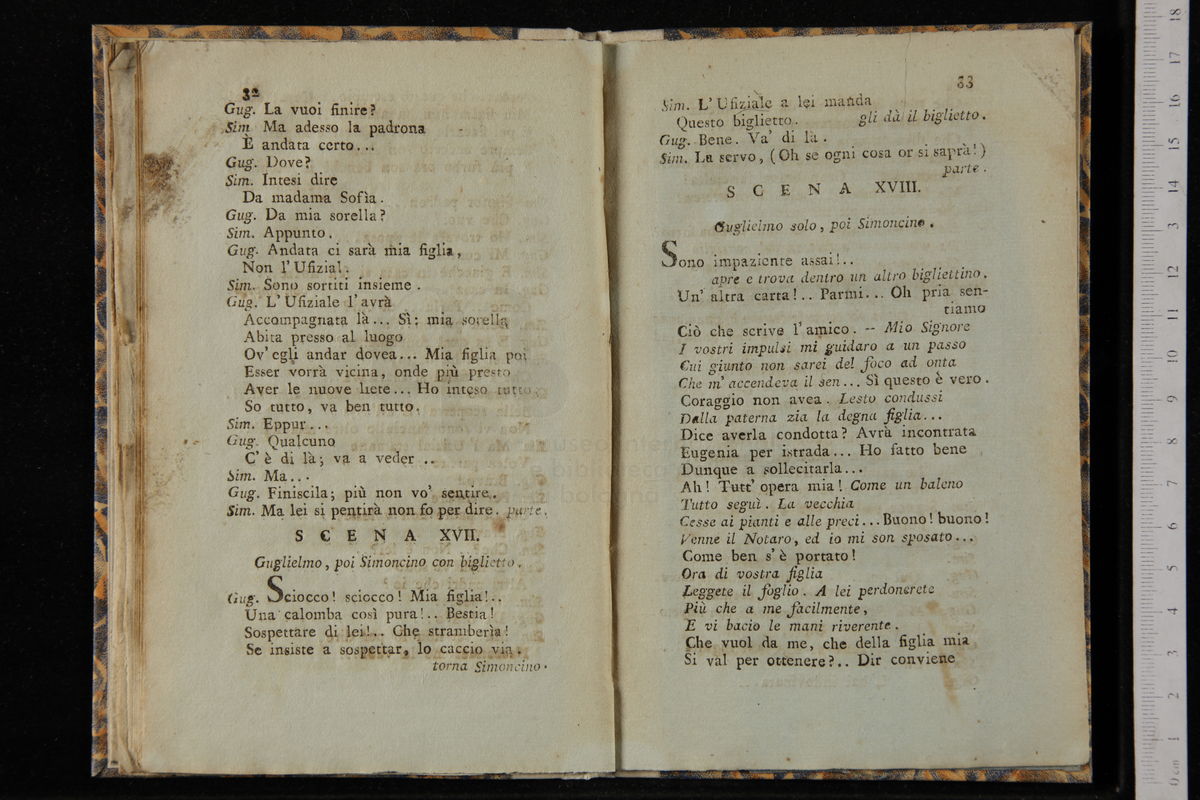 32
Gug. La vuoi finire?
Sim Ma adesso la padrona
È andata certo...
Gug. Dove?
Sim. Intesi dire
Da madama Sofìa.
Gug. Da mia sorella?
Sim. Appunto.
Gug. Andata ci sarà mia figlia,
Non l'Ufizial.
Sim. Sono sortiti insieme.
Gug. L'Ufiziale l'avrà
Accompagnata là... Sì: mia sorella
Abita presso al luogo
Ov'egli andar dovea... Mia figlia poi
Esser vorrà vicina, onde più presto
Aver le nuove liete... Ho inteso tutto,
So tutto, va ben tutto.
Sim. Eppur...
Gug. Qualcuno
C'è di là; va a veder ..
Sim. Ma...
Gug. Finiscila; più non vo' sentire.
Sim. Ma lei si pentirà non fo per dire. parte.
SCENA XVII.
Guglielmo, poi Simoncino con biglietto.
Gug. Sciocco! sciocco! Mia figlia!..
Una calomba così pura!.. Bestia!
Sospettare di lei!.. Che stramberìa!
Se insiste a sospettar, lo caccio via.
torna Simoncino.
33
Sim. L'Ufiziale a lei manda
Questo biglietto. gli dà il biglietto.
Gug. Bene. Va' di là.
Sim. La servo, (Oh se ogni cosa or si saprà!)
parte.
SCENA XVIII.
Guglielmo solo, poi Simoncino.
Sono impaziente assai!..
apre e trova dentro un altro bigliettino.
Un' altra carta!.. Parmi... Oh pria sen-
tiamo
Ciò che scrive l'amico. -- Mio Signore
I vostri impulsi mi guidaro a un passo
Cui giunto non sarei del foco ad onta
Che m'accendeva il sen... Sì questo è vero.
Coraggio non avea. Lesto condussi
Dalla paterna zia la degna figlia...
Dice averla condotta? Avrà incontrata
Eugenia per istrada... Ho fatto bene
Dunque a sollecitarla...
Ah! Tutt' opera mia! Come un baleno
Tutto seguì. La vecchia
Cesse ai pianti e alle preci... Buono! buono!
Venne il Notaro, ed io mi son sposato...
Come ben s'è portato!
Ora di vostra figlia
Leggete il foglio. A lei perdonerete
Più che a me facilmente,
E vi bacio le mani riverente.
Che vuol da me, che della figlia mia
Si val per ottenere?.. Dir conviene